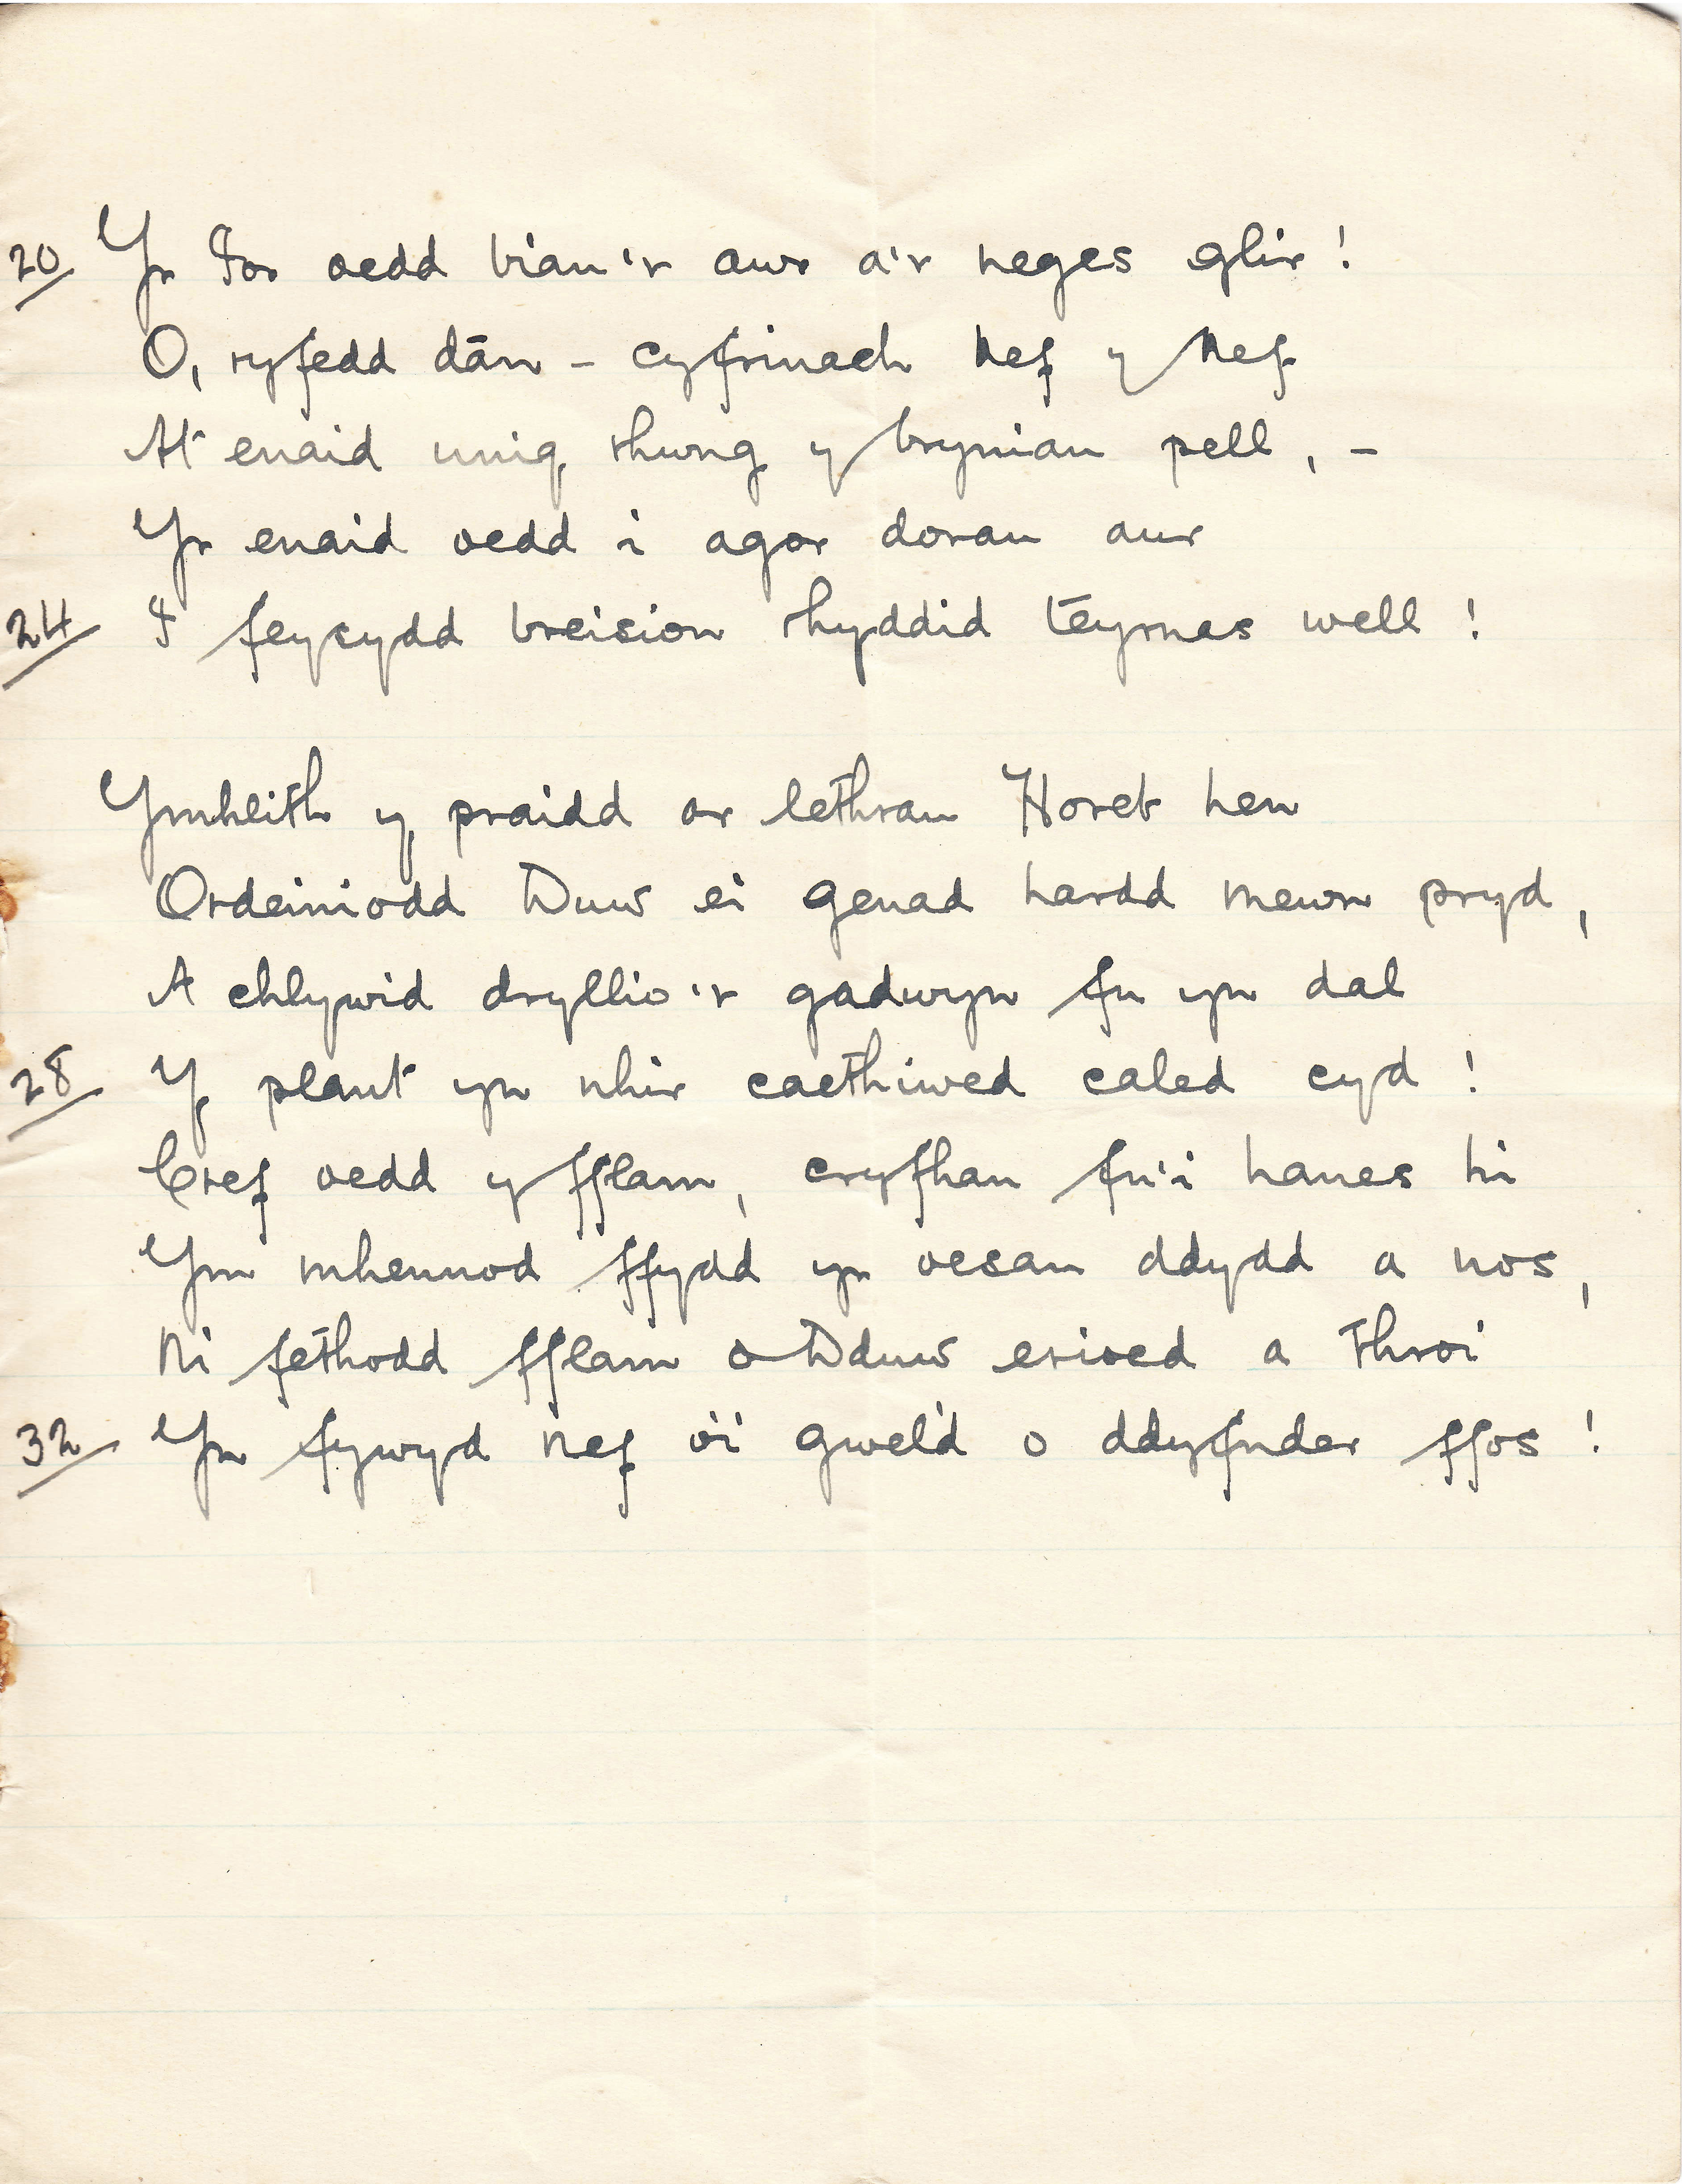 20 Yr Iôr oedd bïau'r awr a'r neges glir!
O, ryfedd dân - cyfrinach Nef y Nef
At enaid unig rhwng y bryniau pell, -
Yr enaid oedd i agor dorau aur
24 I feysydd breision rhyddid teyrnas well!
Ymhlith y praidd ar lethrau Horeb hen
Ordeiniodd Duw ei genad hardd mewn pryd,
A chlywid dryllio'r gadwyn fu yn dal
28 Y plant yn nhir caethiwed caled cyd!
Cref oedd y fflam, cryfhau fu'i hanes hi
Ym mhennod ffydd yr oesau ddydd a nos,
Ni fethodd fflam o Dduw erioed a throi
32 Yn fywyd nef o'i gweld o ddyfnder ffos!